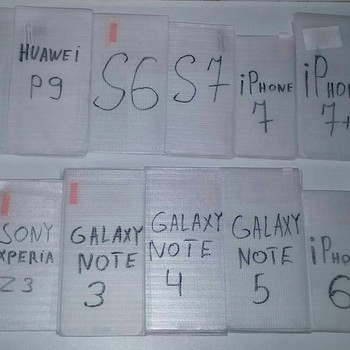 HUAWEi
P9
S6
S7
iPHONE
7
iPHO
7+
SONY
XPERIA
Z3
GALAXY
NOTE
3
GALAXY
NOTE
4
GALAXY
NOTE
5
iPHO
6